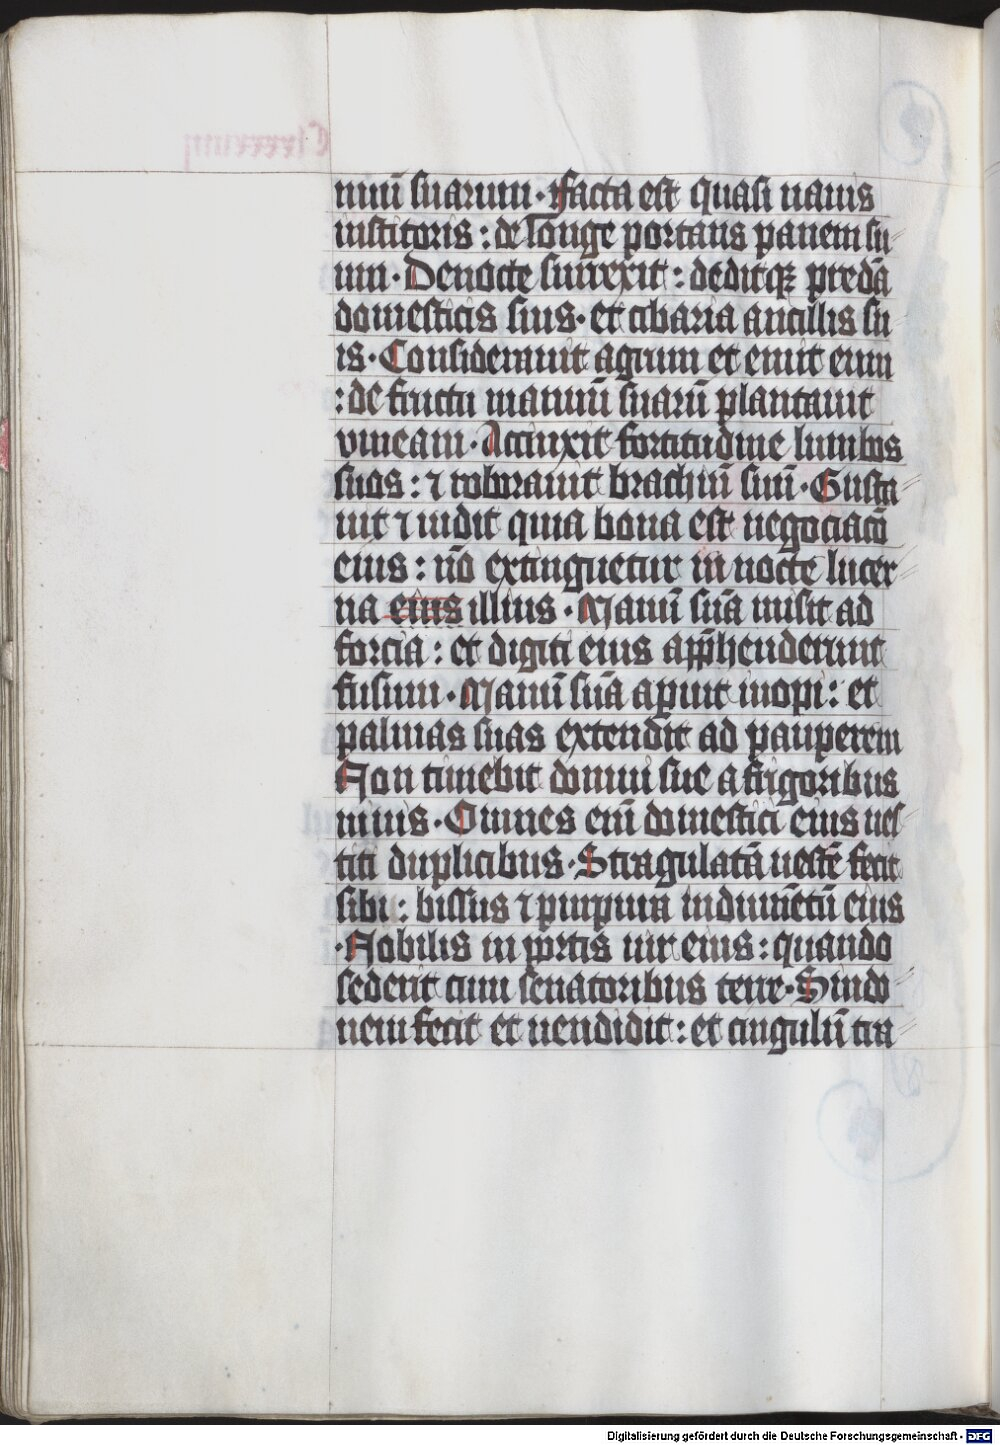 nuū suarum · Facta est quasi nauis
institoris : de longe portans panem su
um · De nocte surrexit : deditq; predā
domesticis suis · et cibaria ancillis su
is · Considerauit agrum et emit eum
: de fructu manuū suarū plantauit
vineam · Accinxit fortitudine lumbos
suos : ⁊ roborauit brachiū suū · Gusta
uit ⁊ uidit quia bona est negociacō
eius : nō extinguetur in nocte lucer
na eius illius · Manū suā misit ad
forcia : et digiti eius apphenderunt
fusum · Manū suā apuit inopi : et
palmas suas extendit ad pauperem
Non timebit domui sue a frigoribus
niuis · Omnes enī domestici eius ues
titi duplicibus · Stragulatā uestē fecit
sibi : bissus ⁊ purpura indumētū eius
· Nobilis in portis uir eius : quando
sederit cum senatoribus terre · Sindo
nem fecit et uendidit : et cingulū tra
Digitalisierung gefördert durch die Deutsche Forschungsgemeinschaft - DFG